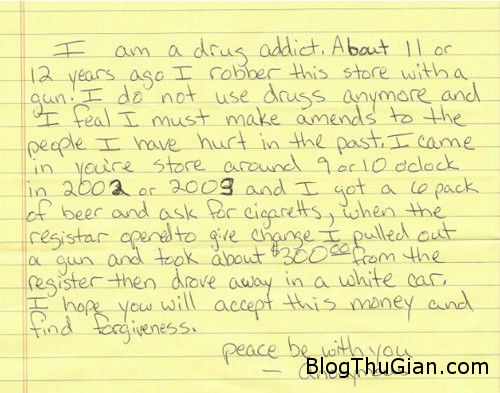 I am a drug addict. About 11 or
12 years ago I robber this store with a
gun. I do not use drugs anymore and
I feal I must make amends to the
people I have hurt in the past. I came
in you're store around 9 or 10 oclock
in 2002 or 2003 and I got a 6 pack
of beer and ask for cigaretts, when the
registar opened to give change I pulled out
a gun and took about $300.00 from the
register then drove away in a white car.
I hope you will accept this money and
find forgiveness.
peace be with you
— anonymous
BlogThuGian.com